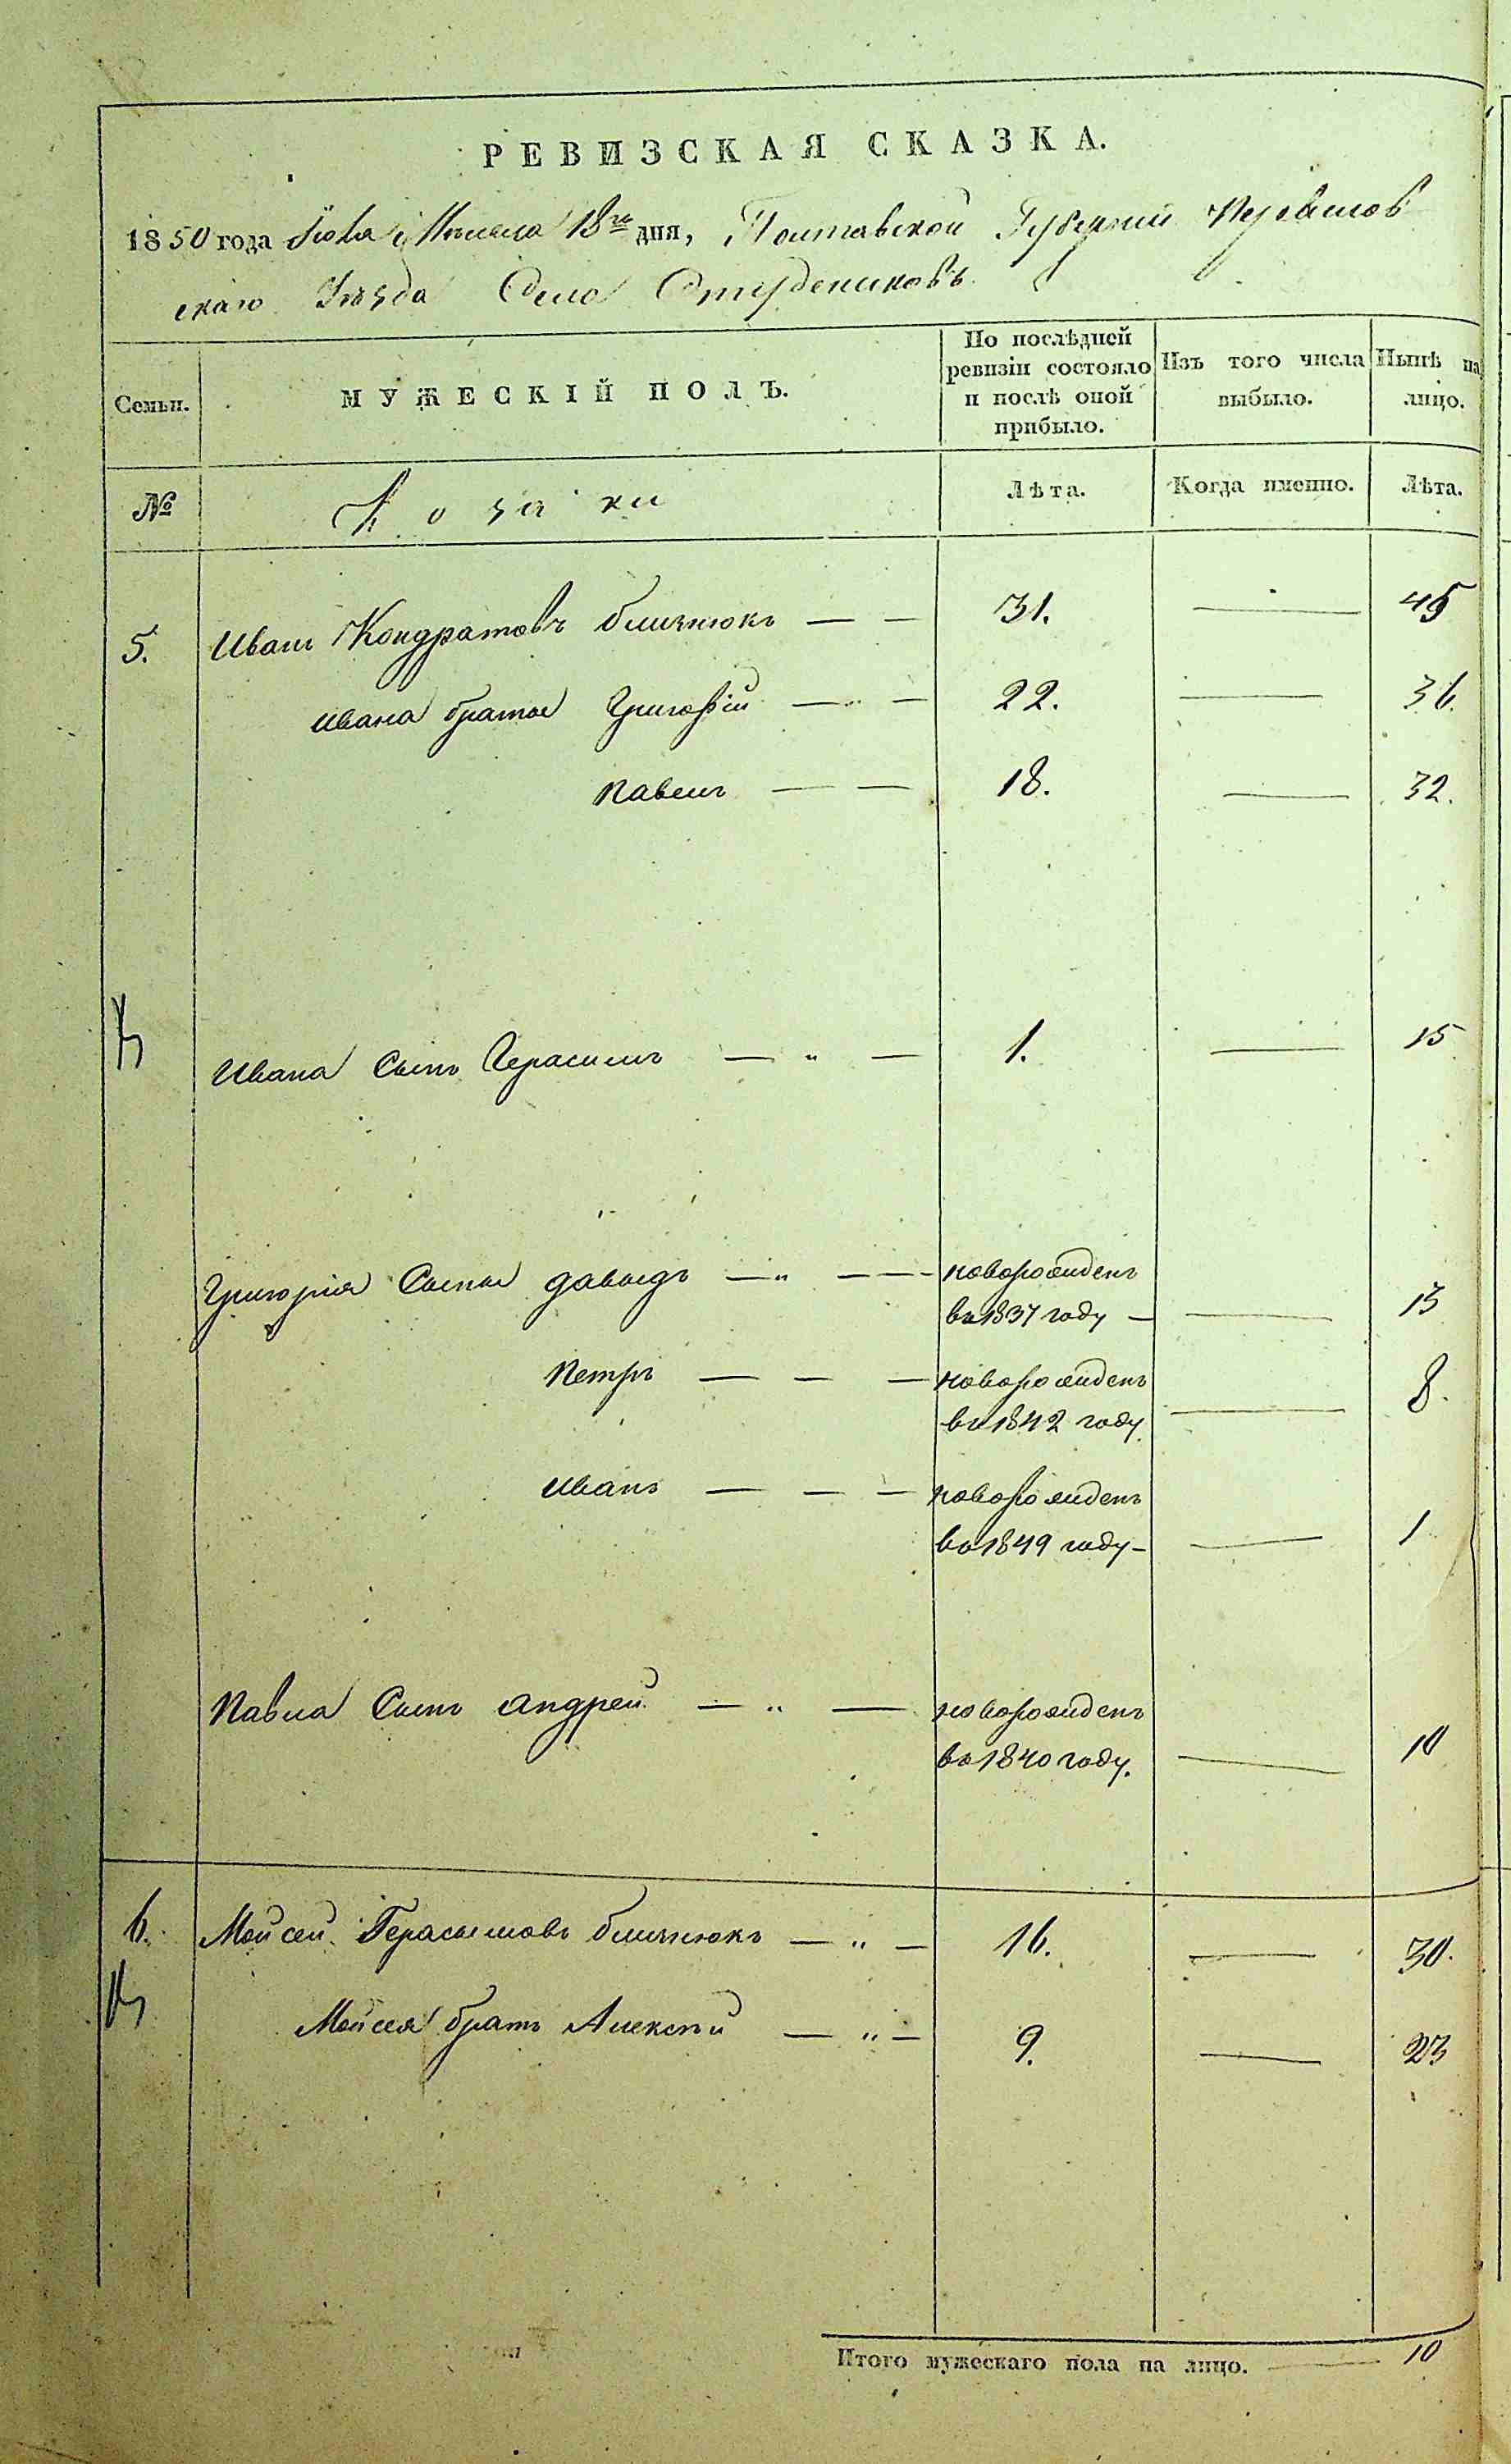 РЕВИЗСКАЯ СКАЗКА.
1850 года Іюля Мѣсяца 18го дня, Полтавской Губерніи Переяслов
скаго Уѣзда Села Студениковъ
Семьи.
МУЖЕСКІЙ ПОЛЪ.
По послѣдней
ревизіи состояло
и послѣ оной
прибыло.
Изъ того числа
выбыло.
Нынѣ на
лицо.
№
Козаки
Лѣта.
Когда именно.
Лѣта.
5. Иванъ Кондратовъ Близнюкъ — — 31. — 45
Ивана братья Григорій — — 22. — 36.
Павелъ — — 18. — 32.
Ивана Сынъ Герасимъ — „ — 1. — 15
Григорія Сынъя Давыдъ — „ — — новорожденъ
въ 1837 году — — 13
Петръ — — — новорожденъ
въ 1842 году — 8.
Иванъ — — — новорожденъ
въ 1849 году — — 1
Павла Сынъ Андрей — „ — новорожденъ
въ 1840 году. — 10
6. Мойсей Герасымовъ Близнюкъ — „ — 16. — 30.
Мойсея братъ Алексѣй — „ — 9. — 23
Итого мужескаго пола на лицо. — 10